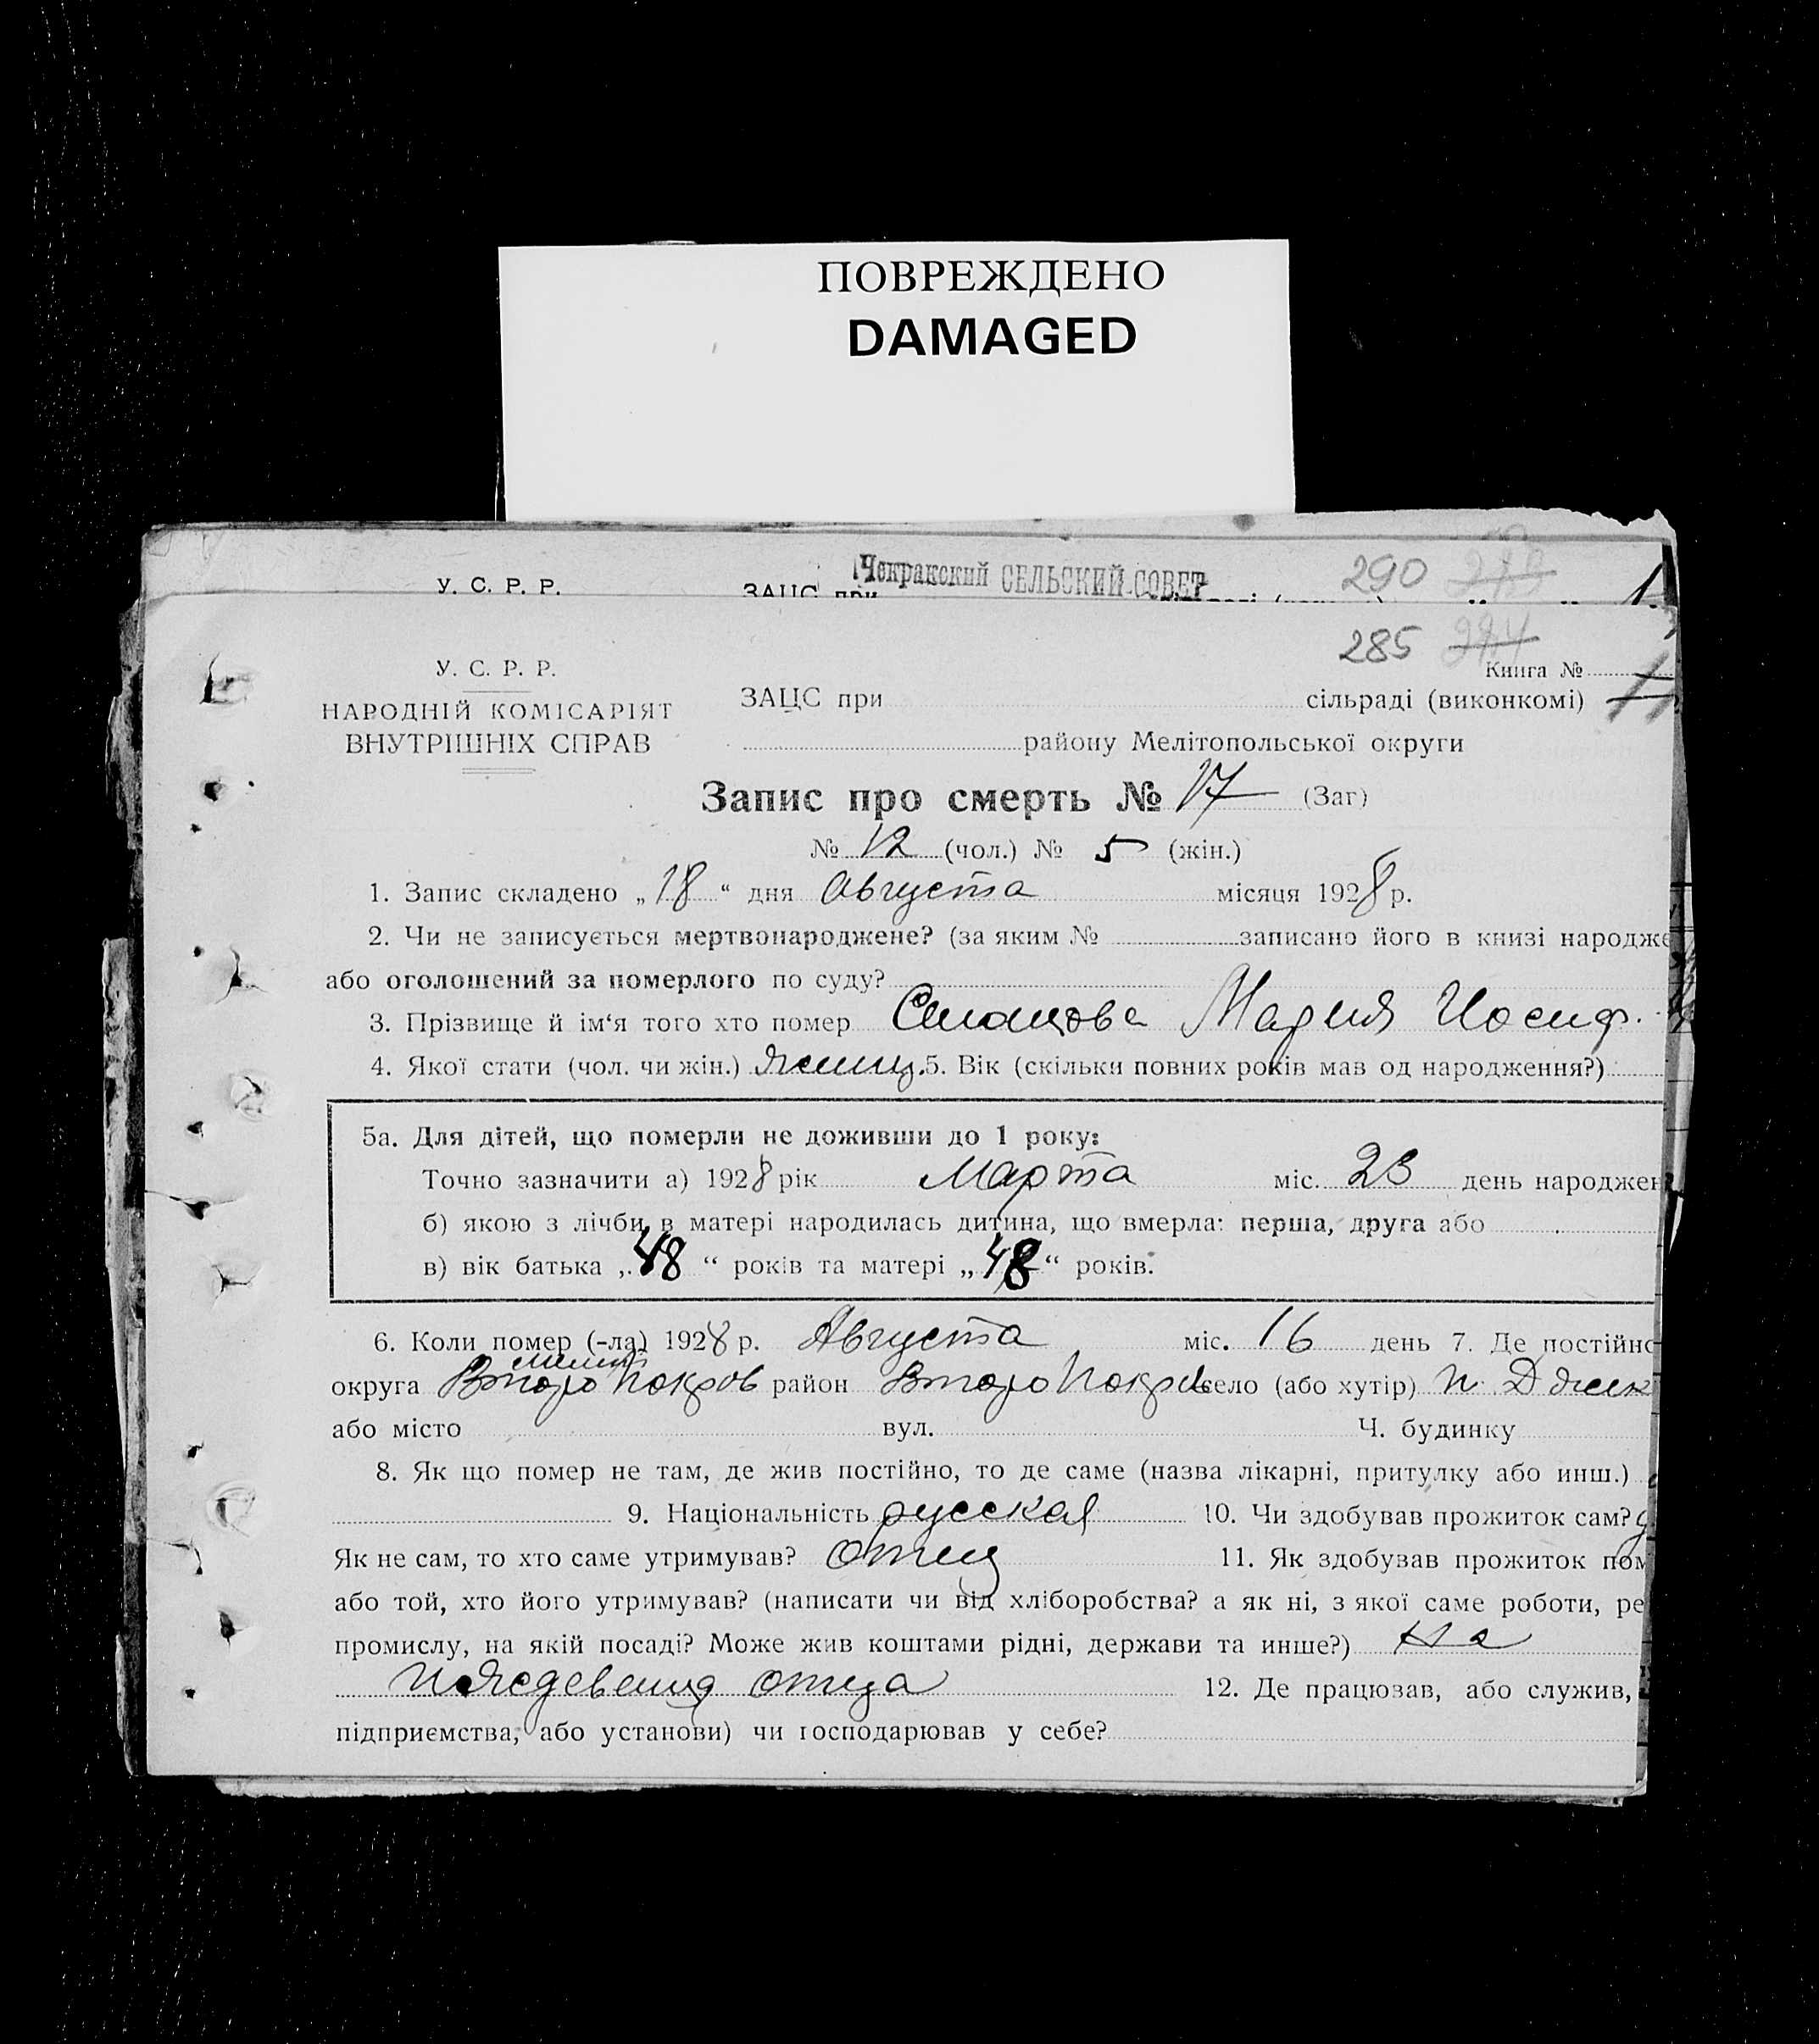 ПОВРЕЖДЕНО
DAMAGED
Чокракский СЕЛЬСКИЙ СОВЕТ
290
У. С. Р. Р. ЗАЦС при
285 Книга №
У. С. Р. Р.
ЗАЦС при сільраді (виконкомі)
НАРОДНІЙ КОМІСАРІЯТ
ВНУТРІШНІХ СПРАВ
району Мелітопольської округи
Запис про смерть № 17 (Заг)
№ 12 (чол.) № 5 (жін.)
1. Запис складено „18“ дня Августа місяця 1928 р.
2. Чи не записується мертвонароджене? (за яким № записано його в книзі народже
або оголошений за померлого по суду?
3. Прізвище й ім‘я того хто помер Мария Иосиф.
4. Якої стати (чол. чи жін.) женщ. 5. Вік (скільки повних років мав од народження?)
5а. Для дітей, що померли не доживши до 1 року:
Точно зазначити а) 1928 рік Марта міс. 23 день народжен
б) якою з лічби в матері народилась дитина, що вмерла: перша, друга або
в) вік батька „48“ років та матері „48“ років.
6. Коли помер (-ла) 1928 р. Августа міс. 16 день 7. Де постійно
округа Второ Покров район Второ Покров село (або хутір) п.
або місто вул. Ч. будинку
8. Як що помер не там, де жив постійно, то де саме (назва лікарні, притулку або инш.)
9. Національність русская 10. Чи здобував прожиток сам?
Як не сам, то хто саме утримував? отец 11. Як здобував прожиток пом
або той, хто його утримував? (написати чи від хліборобства? а як ні, з якої саме роботи, ре
промислу, на якій посаді? Може жив коштами рідні, держави та инше?) на
отца 12. Де працював, або служив,
підприємства, або установи) чи господарював у себе?